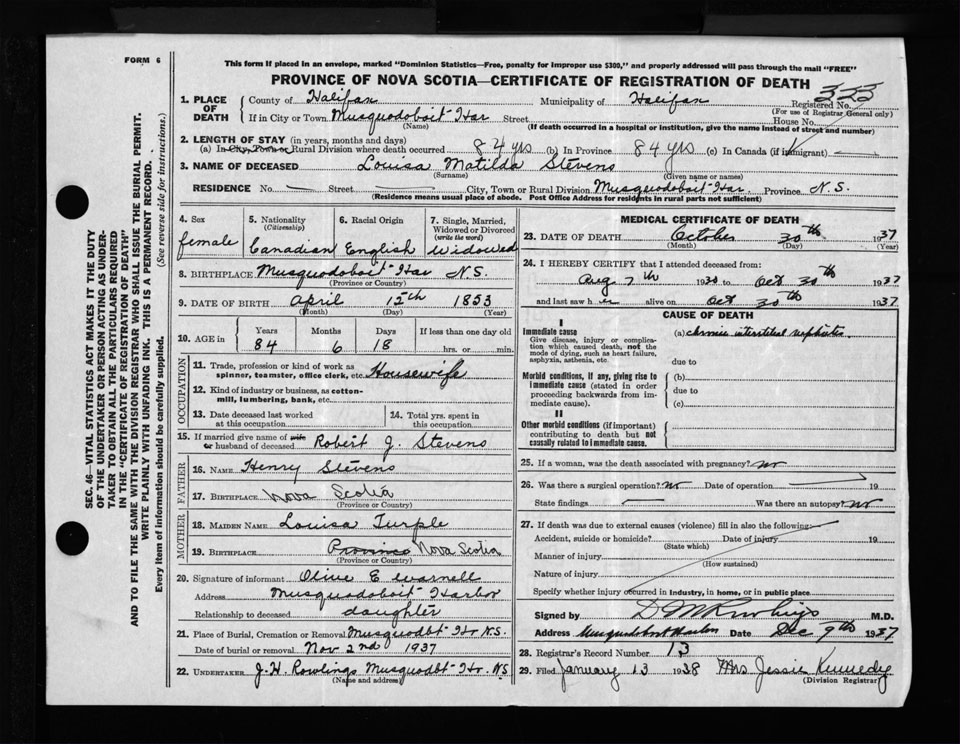 FORM 6
This form if placed in an envelope, marked "Dominion Statistics—Free, penalty for improper use $300," and properly addressed will pass through the mail "FREE"
PROVINCE OF NOVA SCOTIA—CERTIFICATE OF REGISTRATION OF DEATH
SEC. 46—VITAL STATISTICS ACT MAKES IT THE DUTY
OF THE UNDERTAKER OR PERSON ACTING AS UNDER-
TAKER TO OBTAIN ALL THE PARTICULARS REQUIRED
IN THE "CERTIFICATE OF REGISTRATION OF DEATH"
AND TO FILE THE SAME WITH THE DIVISION REGISTRAR WHO SHALL ISSUE THE BURIAL PERMIT.
WRITE PLAINLY WITH UNFADING INK. THIS IS A PERMANENT RECORD.
Every item of information should be carefully supplied. (See reverse side for instructions.)
1. PLACE OF DEATH County of Halifax Municipality of Halifax Registered No. 333
(For use of Registrar General only)
If in City or Town Musquodoboit Har Street House No.
(Name) (If death occurred in a hospital or institution, give the name instead of street and number)
2. LENGTH OF STAY (in years, months and days)
(a) In City, Town or Rural Division where death occurred 84 yrs (b) In Province 84 yrs (c) In Canada (if immigrant) —
3. NAME OF DECEASED Louisa Matilda Stevens
(Surname) (Given name or names)
RESIDENCE No. — Street — City, Town or Rural Division Musquodoboit Har. Province N.S.
(Residence means usual place of abode. Post Office Address for residents in rural parts not sufficient)
4. Sex female
5. Nationality (Citizenship) Canadian
6. Racial Origin English
7. Single, Married, Widowed or Divorced (write the word) widowed
8. BIRTHPLACE Musquodoboit Har N.S.
(Province or Country)
9. DATE OF BIRTH April 12th 1853
(Month) (Day) (Year)
10. AGE in Years Months Days If less than one day old
84 6 18 hrs. or min.
OCCUPATION
11. Trade, profession or kind of work as
spinner, teamster, office clerk, etc. Housewife
12. Kind of industry or business, as cotton-
mill, lumbering, bank, etc.
13. Date deceased last worked
at this occupation
14. Total yrs. spent in
this occupation
15. If married give name of wife
or husband of deceased Robert J. Stevens
FATHER
16. NAME Henry Stevens
17. BIRTHPLACE Nova Scotia
(Province or Country)
MOTHER
18. MAIDEN NAME Louisa Turple
19. BIRTHPLACE Province Nova Scotia
(Province or Country)
20. Signature of informant Olive E Warnell
Address Musquodoboit Harbor
Relationship to deceased daughter
21. Place of Burial, Cremation or Removal Musquodbt Hr N.S.
Date of burial or removal Nov 2nd 1937
22. UNDERTAKER J. H. Rowlings Musquodbt Hr. NS
(Name and address)
MEDICAL CERTIFICATE OF DEATH
23. DATE OF DEATH October 30th 1937
(Month) (Day) (Year)
24. I HEREBY CERTIFY that I attended deceased from:
Aug 7th 1930 to Oct 30th 1937
and last saw her alive on Oct 30th 1937
CAUSE OF DEATH
I
Immediate cause (a) chronic interstitial nephritis
Give disease, injury or complica-
tion which caused death, not the
mode of dying, such as heart failure,
asphyxia, asthenia, etc.
due to
Morbid conditions, if any, giving rise to
immediate cause (stated in order
proceeding backwards from im-
mediate cause).
(b)
due to
(c)
II
Other morbid conditions (if important)
contributing to death but not
causally related to immediate cause.
25. If a woman, was the death associated with pregnancy? no
26. Was there a surgical operation? no Date of operation 19
State findings — Was there an autopsy? no
27. If death was due to external causes (violence) fill in also the following:
Accident, suicide or homicide? Date of injury 19
(State which)
Manner of injury
(How sustained)
Nature of injury
Specify whether injury occurred in industry, in home, or in public place
Signed by D M Rowlings M.D.
Address Musquodoboit Harbor Date Dec 9th 1937
28. Registrar's Record Number 13
29. Filed January 13 1938 Mrs Jessie Kennedy
(Division Registrar)